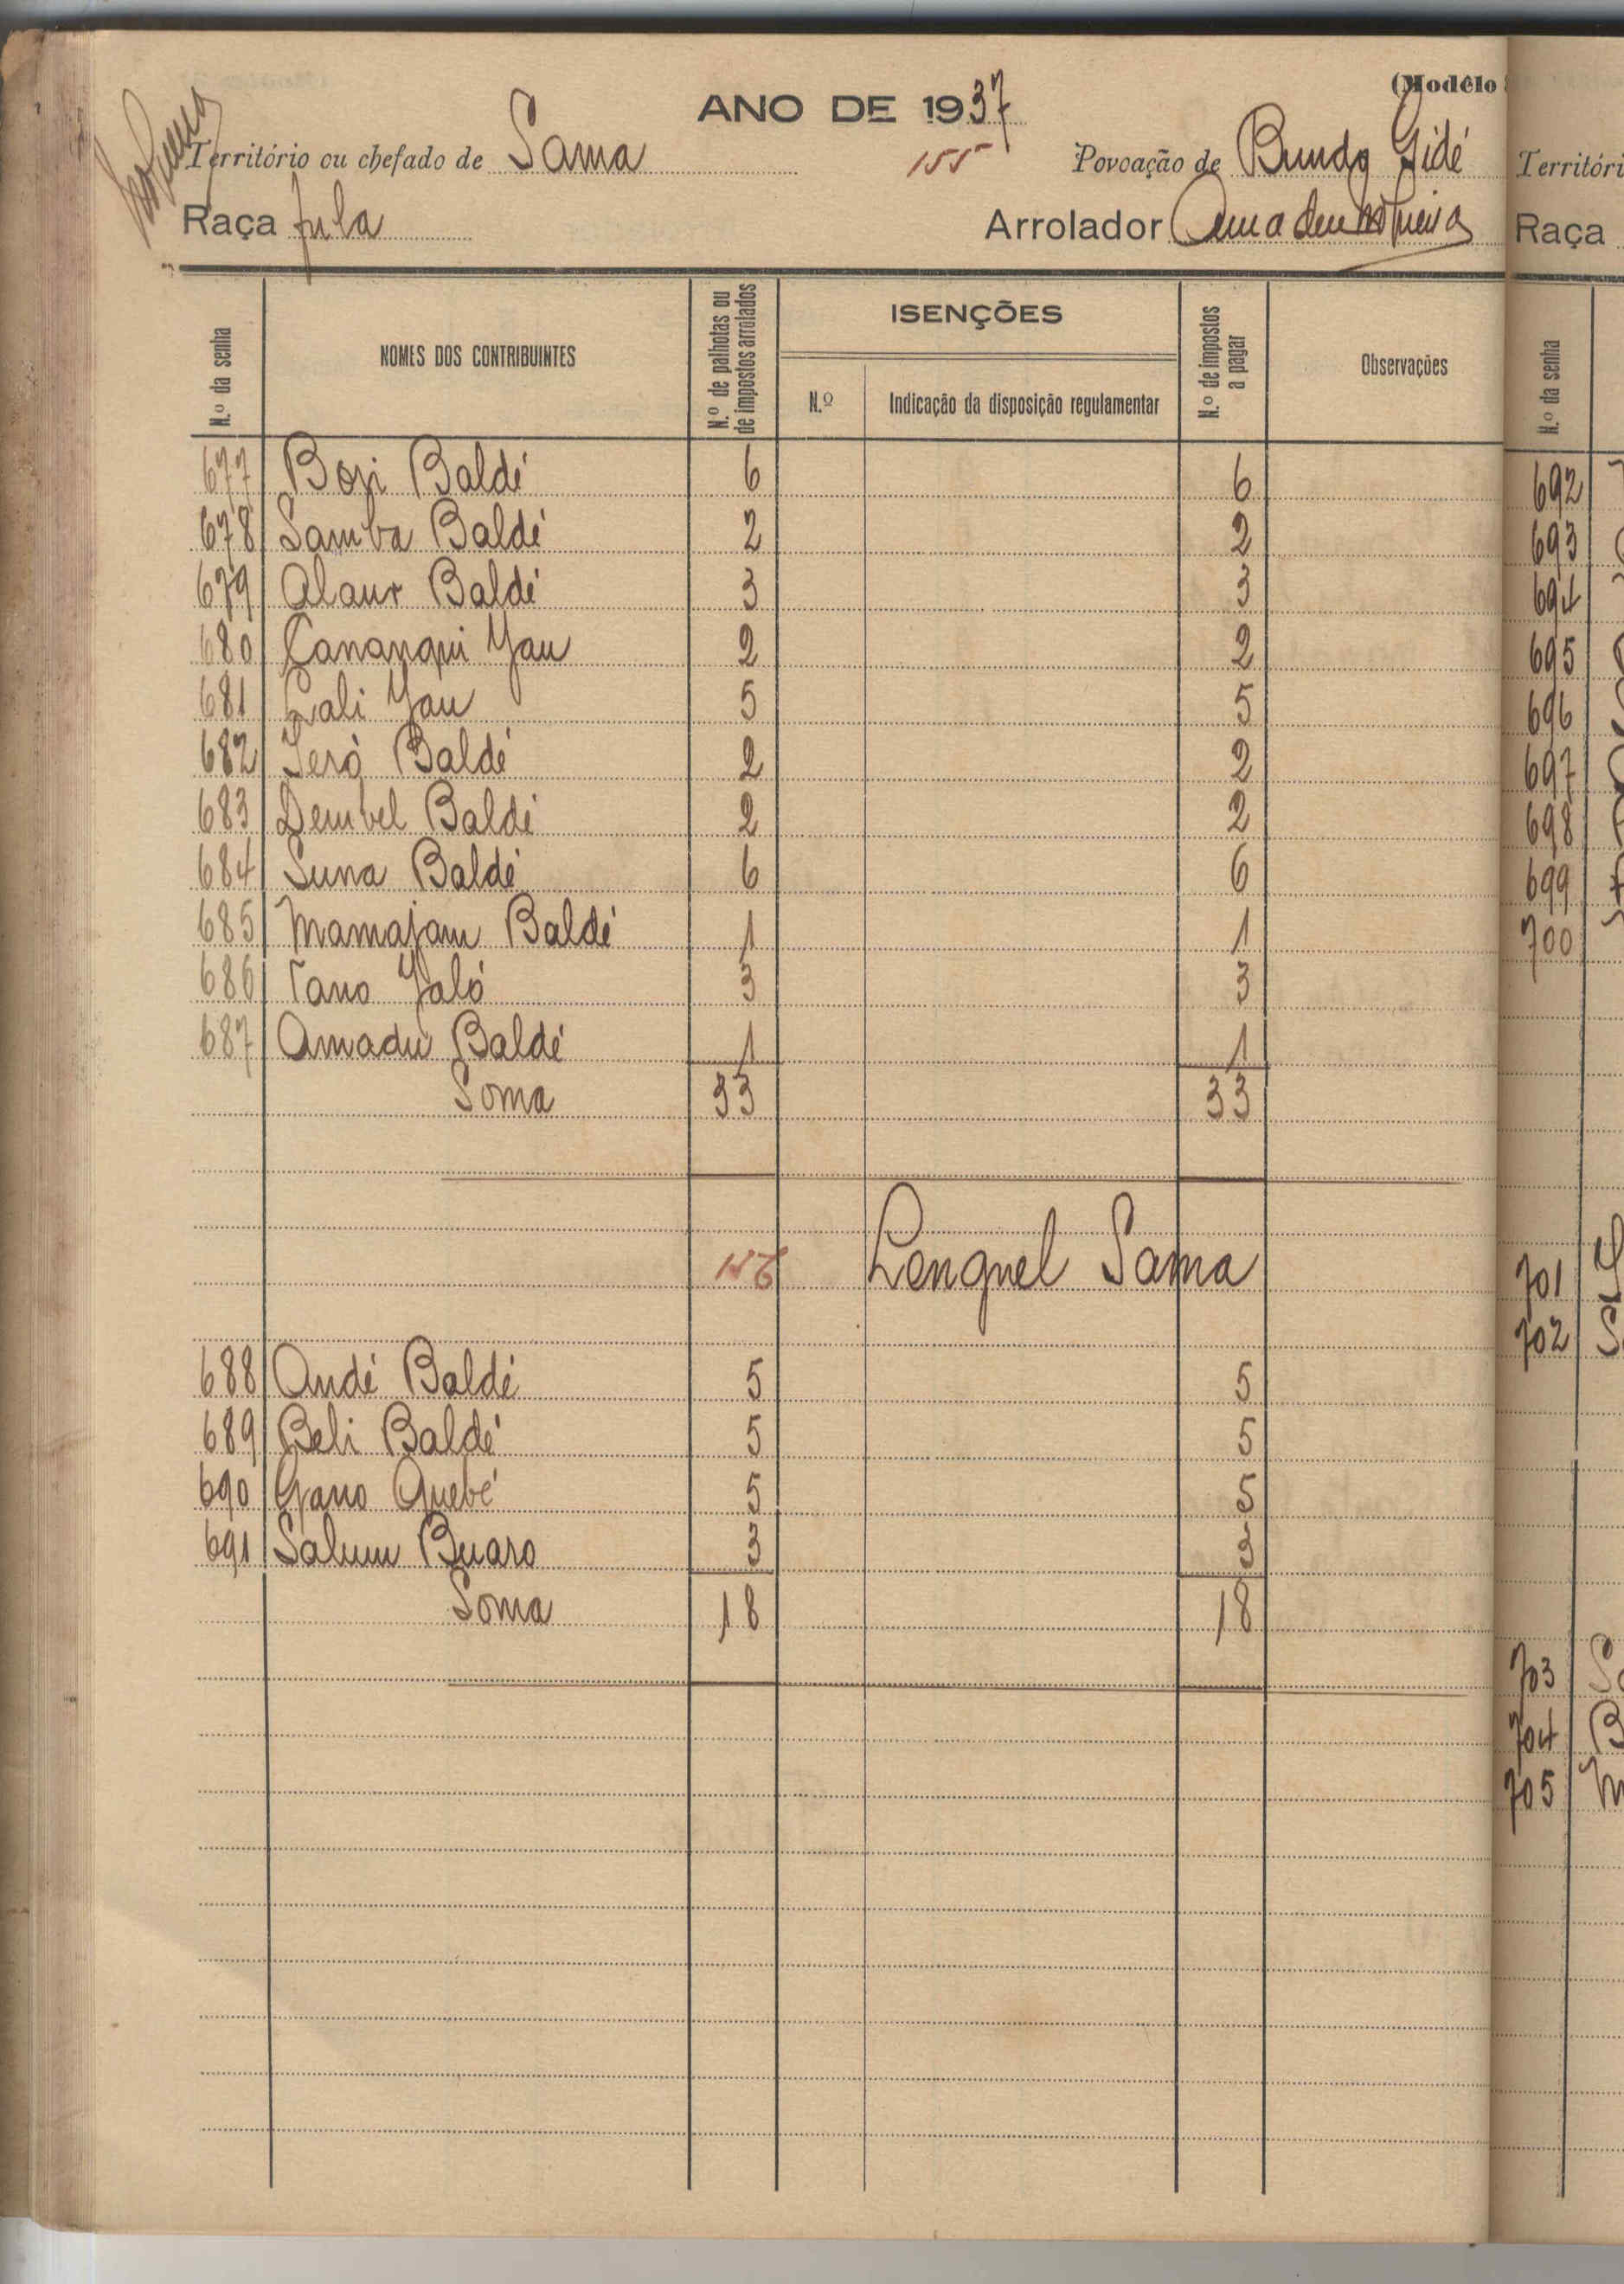 (Modêlo
ANO DE 1937
Território ou chefado de Sama 155 Povoação de Bundo Gidé
Raça Fula Arrolador
N.º da senha NOMES DOS CONTRIBUINTES N.º de palhotas ou de impostos arrolados ISENÇÕES N.º Indicação da disposição regulamentar N.º de impostos a pagar Observações
677 Bori Baldé 6 6
678 Samba Baldé 2 2
679 Alaur Baldé 3 3
680 Cananqui Jau 2 2
681 Lali Jau 5 5
682 Serò Baldé 2 2
683 Dembel Baldé 2 2
684 Suna Baldé 6 6
685 Mamajam Baldé 1 1
686 Tano Jaló 3 3
687 Amadú Baldé 1 1
Soma 33 33
156 Lenquel Sama
688 Andé Baldé 5 5
689 Beli Baldé 5 5
690 Gano Quebé 5 5
691 Salum Buaro 3 3
Soma 18 18
Territóri
Raça
N.º da senha
692
693
694
695
696
697
698
699
700
701
702
703
704
705